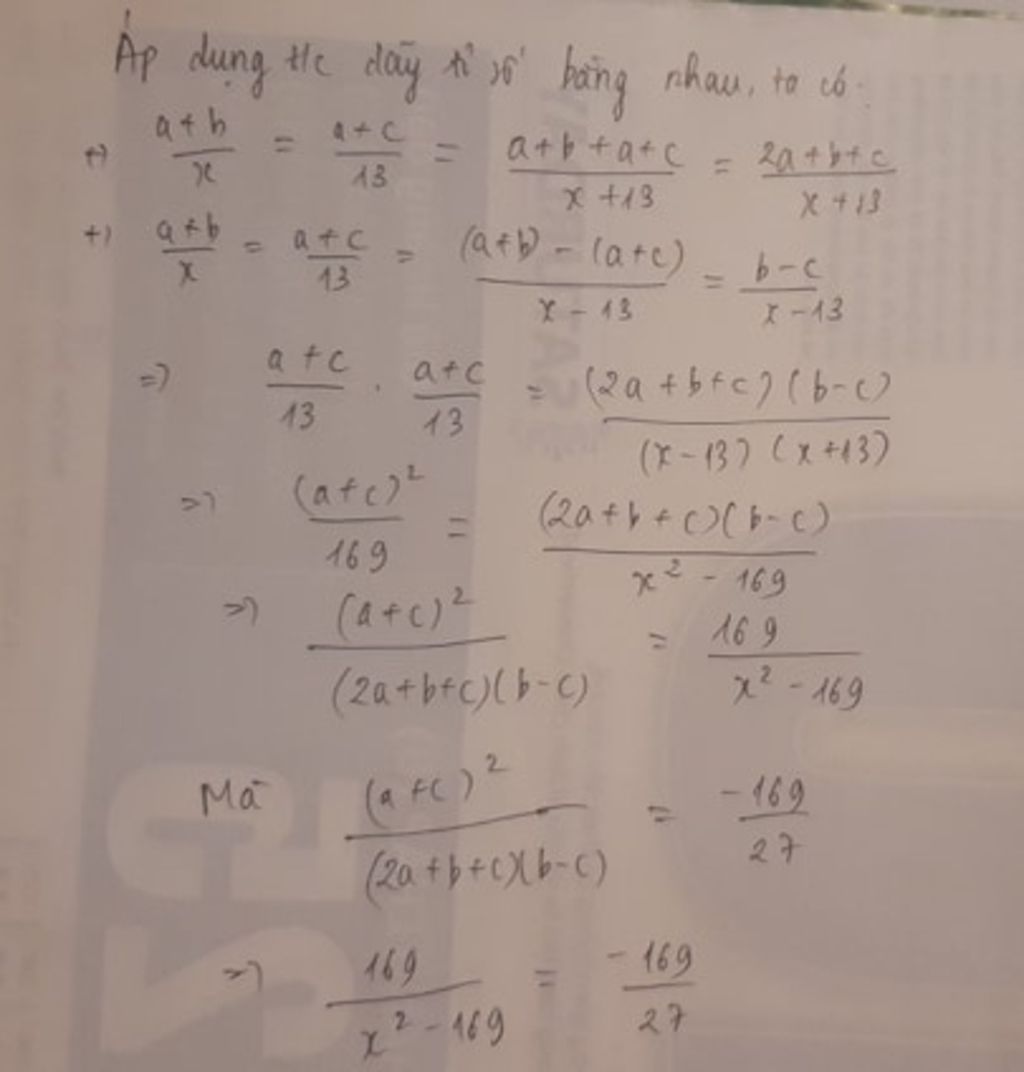 Áp dụng t/c dãy tỉ số bằng nhau, ta có:
+) \frac{a+b}{x} = \frac{a+c}{13} = \frac{a+b+a+c}{x+13} = \frac{2a+b+c}{x+13}
+) \frac{a+b}{x} = \frac{a+c}{13} = \frac{(a+b)-(a+c)}{x-13} = \frac{b-c}{x-13}
=) \frac{a+c}{13} . \frac{a+c}{13} = \frac{(2a+b+c)(b-c)}{(x-13)(x+13)}
=) \frac{(a+c)^2}{169} = \frac{(2a+b+c)(b-c)}{x^2-169}
=) \frac{(a+c)^2}{(2a+b+c)(b-c)} = \frac{169}{x^2-169}
Mà \frac{(a+c)^2}{(2a+b+c)(b-c)} = \frac{-169}{27}
=) \frac{169}{x^2-169} = \frac{-169}{27}